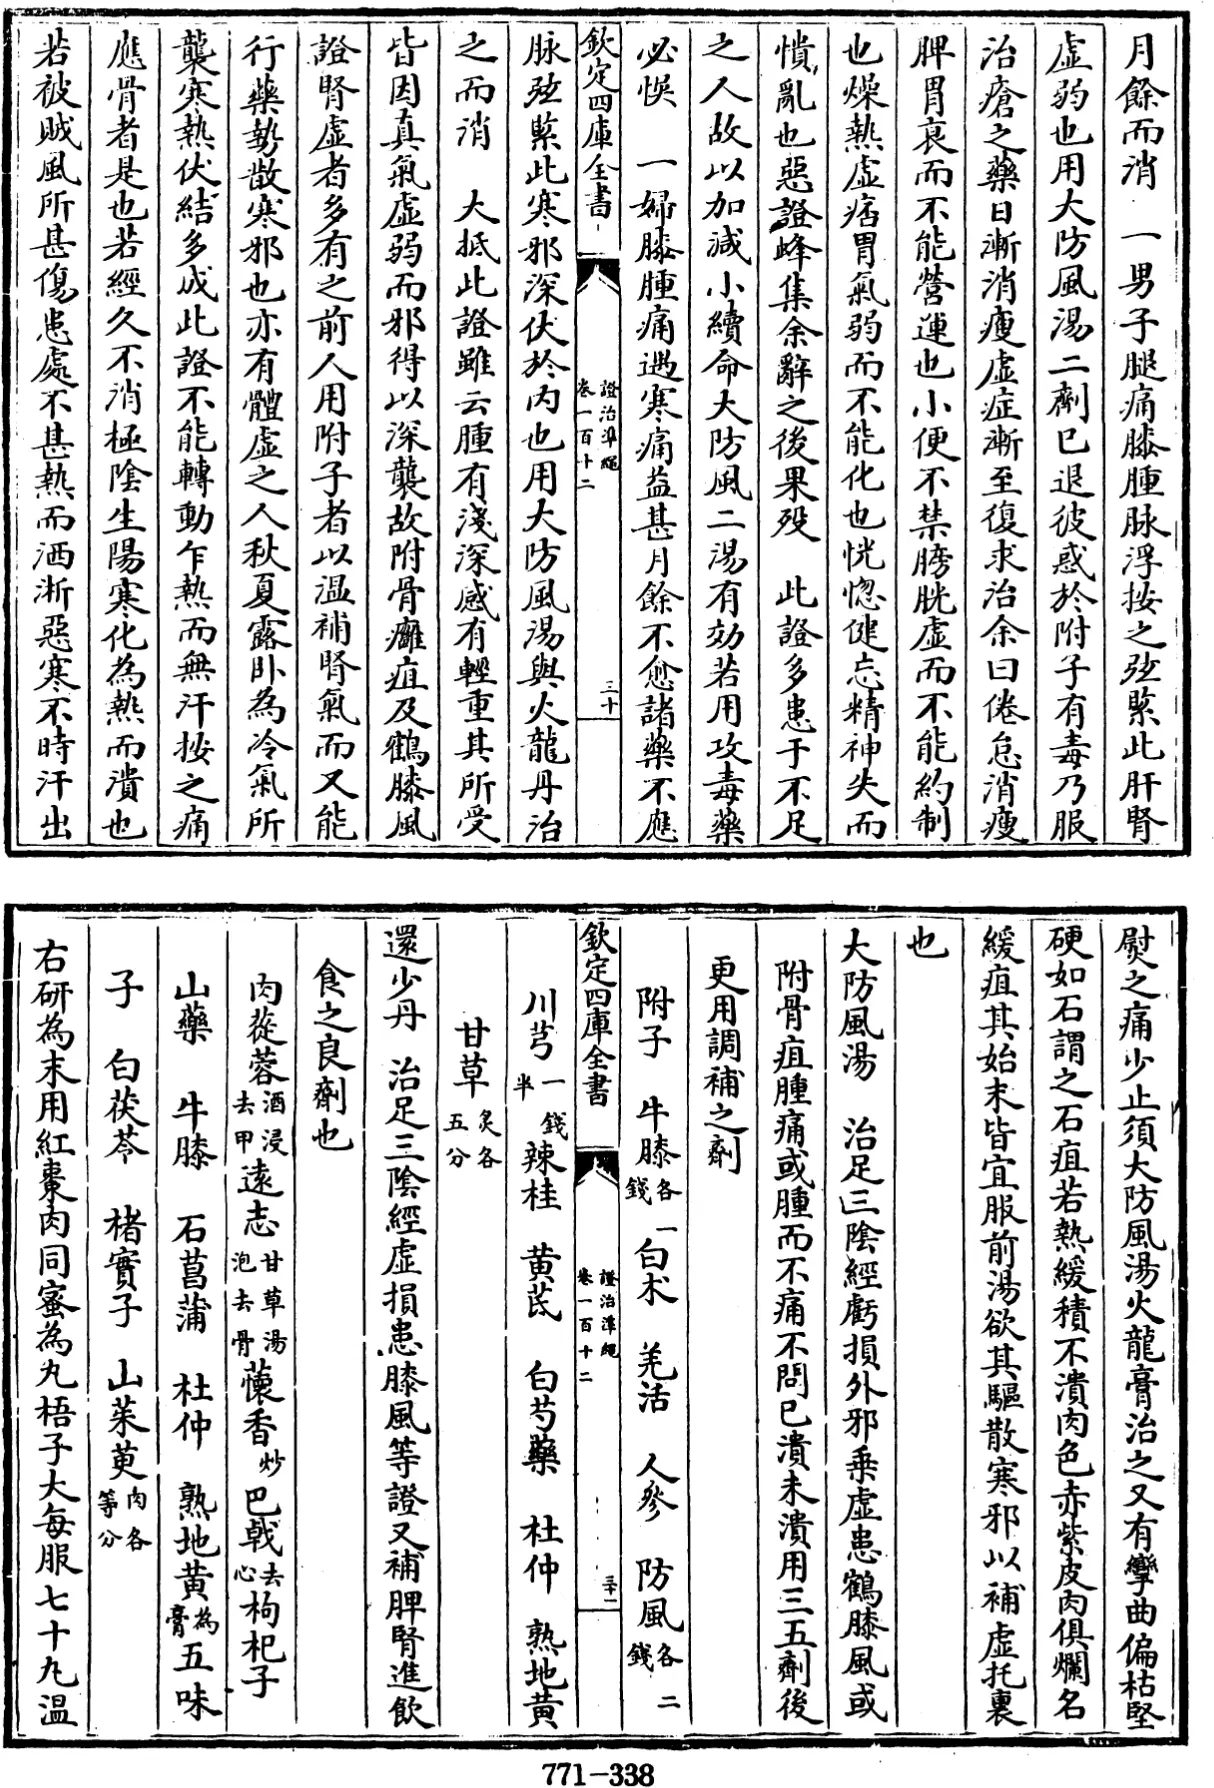 月餘而消　一男子腿痛膝腫脉浮按之弦緊此肝腎
虛弱也用大防風湯二劑已退彼惑於附子有毒乃服
治瘡之藥日漸消瘦虛症漸至復求治余曰倦怠消瘦
脾胃衰而不能營運也小便不禁膀胱虛而不能約制
也燥熱虛痞胃氣弱而不能化也恍惚健忘精神失而
憒亂也惡證蜂集余辭之後果殁　此證多患于不足
之人故以加減小續命大防風二湯有効若用攻毒藥
必悞　一婦膝腫痛遇寒痛益甚月餘不愈諸藥不應
欽定四庫全書
證治準繩
卷一百十二
三十
脉弦緊此寒邪深伏於内也用大防風湯與火龍丹治
之而消　大抵此證雖云腫有淺深感有輕重其所受
皆因真氣虛弱而邪得以深襲故附骨癰疽及鶴膝風
證腎虛者多有之前人用附子者以温補腎氣而又能
行藥勢散寒邪也亦有體虛之人秋夏露卧為冷氣所
襲寒熱伏結多成此證不能轉動乍熱而無汗按之痛
應骨者是也若經久不消極陰生陽寒化為熱而潰也
若被賊風所甚傷患處不甚熱而洒淅惡寒不時汗出
熨之痛少止須大防風湯火龍膏治之又有攣曲偏枯堅
硬如石謂之石疽若熱緩積不潰肉色赤紫皮肉俱爛名
緩疽其始末皆宜服前湯欲其驅散寒邪以補虛托裏
也
大防風湯　治足三陰經虧損外邪乗虛患鶴膝風或
附骨疽腫痛或腫而不痛不問已潰未潰用三五劑後
更用調補之劑
附子　牛膝各一錢　白术　羌活　人參　防風各二錢
欽定四庫全書
證治準繩
卷一百十二
三十一
川芎一錢半　辣桂　黄芪　白芍藥　杜仲　熟地黄
甘草炙各五分
還少丹　治足三陰經虛損患膝風等證又補脾腎進飲
食之良劑也
肉蓯蓉酒浸去甲　遠志甘草湯泡去骨　蘹香炒　巴戟去心　枸杞子
山藥　牛膝　石菖蒲　杜仲　熟地黄為膏　五味
子　白茯苓　楮實子　山茱萸肉各等分
右研為末用紅棗肉同蜜為丸梧子大每服七十丸温
771-338